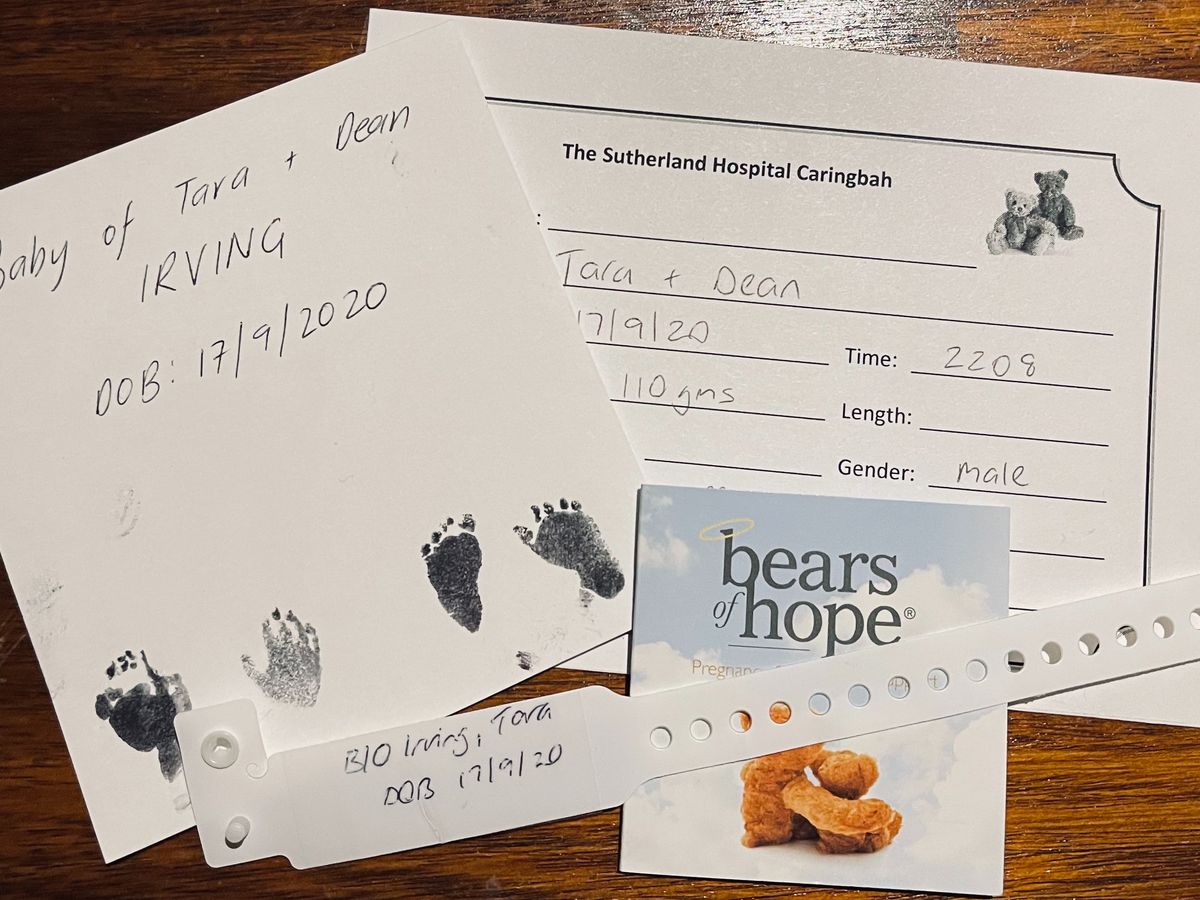 Baby of Tara + Dean
IRVING
DOB: 17/9/2020
The Sutherland Hospital Caringbah
:
Tara + Dean
17/9/20
Time: 2208
110 gms
Length:
Gender: Male
bears
of hope®
B/O Irving, Tara
DOB 17/9/20